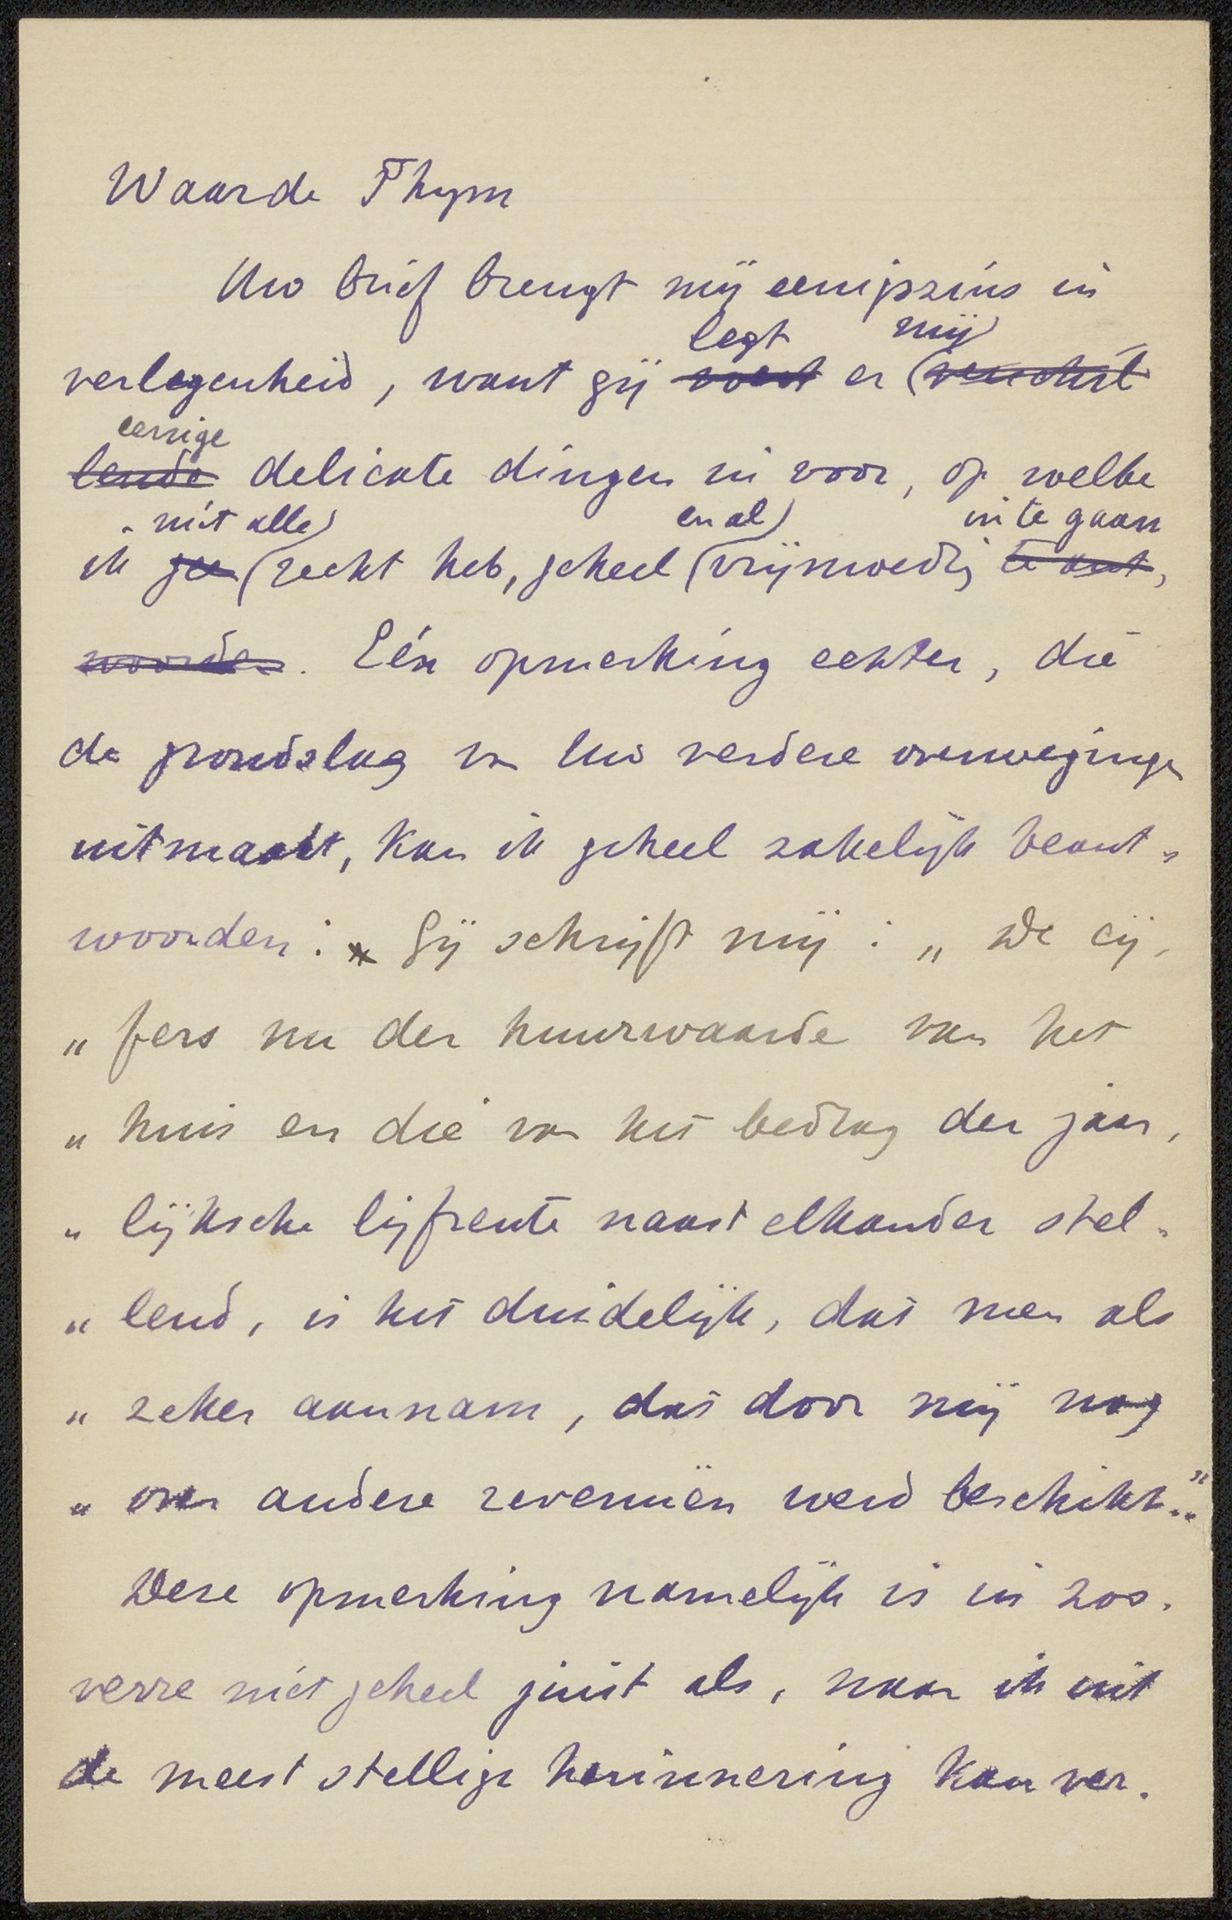 Waarde Thym
Uw brief brengt mij eenigszins in
legt mij
verlegenheid, want gij er (verschil
eenige
lende delicate dingen in voor, op welke
niet alle) en al) in te gaan
ik gee (recht heb, geheel (vrijmoedig te ant,
woorden. Eén opmerking echter, die
de grondslag van Uw verdere overwegingen
uitmaakt, kan ik geheel zakelijk beant-
woorden: Gij schrijft mij: „De cij-
„fers nu der huurwaarde van het
„huis en die van het bedrag der jaar-
„lijksche lijfrente naast elkander stel-
„lend, is het duidelijk, dat men als
„zeker aannam, dat door mij nog
„over andere revenuën werd beschikt."
Deze opmerking namelijk is in zoo-
verre niet geheel juist als, naar ik uit
de meest stellige herinnering kan ver-